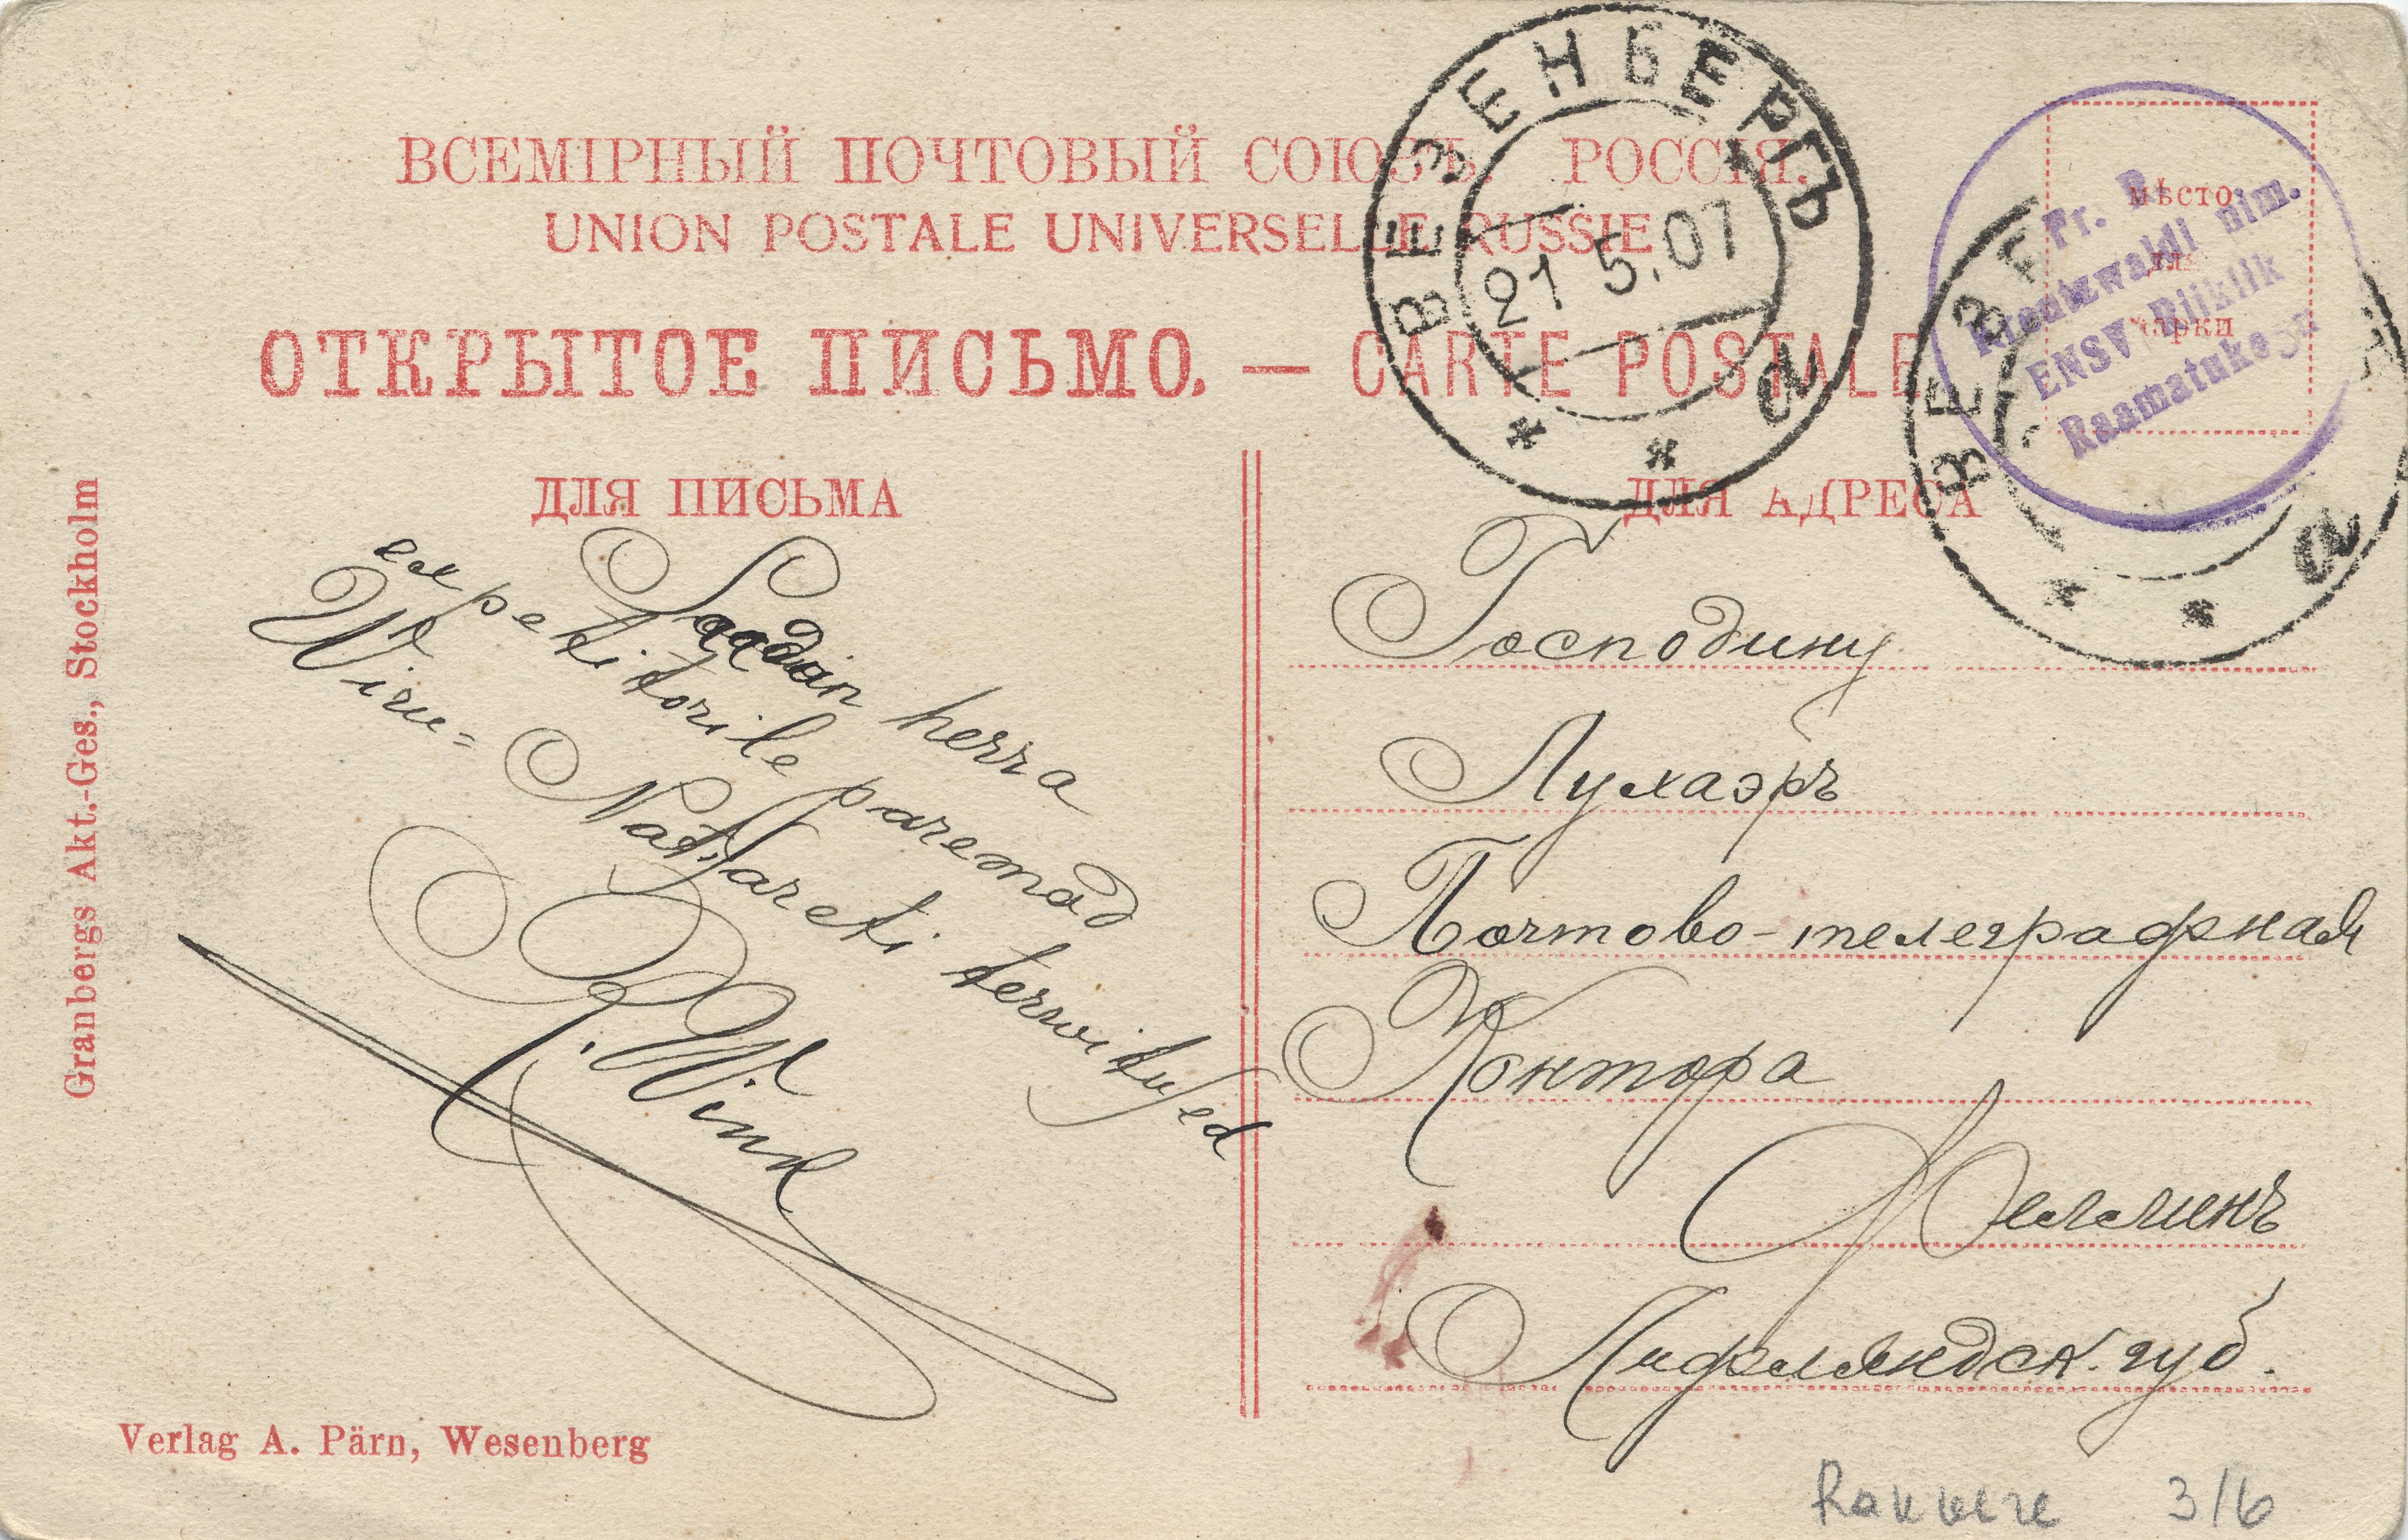 ВСЕМІРНЫЙ ПОЧТОВЫЙ СОЮЗЪ. РОССІЯ.
UNION POSTALE UNIVERSELLE RUSSIE
ОТКРЫТОЕ ПИСЬМО. — CARTE POSTALE
ВЕЗЕНБЕРГЪ
21 5.07
* * а
мѣсто
для
марки
Fr. R.
Kreutzwaldi nim.
ENSV Riiklik
Raamatukogu
ВЕЗЕ
* * а
ДЛЯ ПИСЬМА
Saadan herra
expetitorile paremad
Wiru=Natsareti terwitused
R. Wink
ДЛЯ АДРЕСА
Господину
Лухаэръ
Почтово-телеграфная
Контора
Феллинъ
Лифляндск. губ.
Granbergs Akt.-Ges., Stockholm
Verlag A. Pärn, Wesenberg
Rakvere 3/6